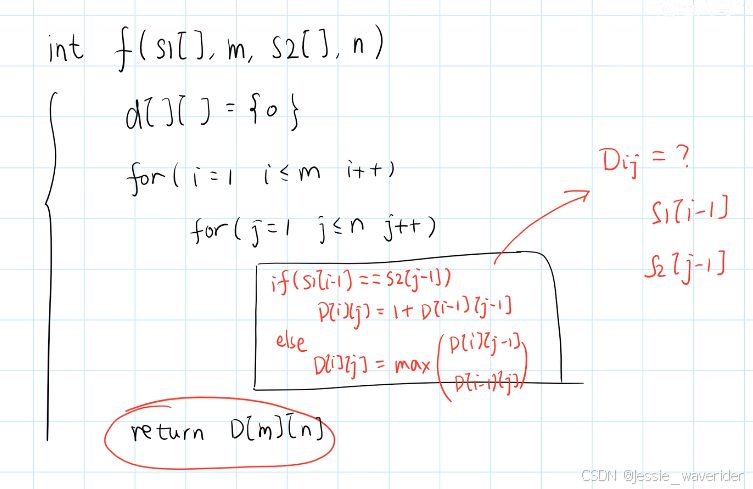 int f(S1[], m, S2[], n)
d[][] = {0}
for( i=1 i≤m i++)
for( j=1 j≤n j++)
if(S1[i-1] == S2[j-1])
D[i][j] = 1 + D[i-1][j-1]
else
D[i][j] = max(D[i][j-1]
D[i-1][j])
return D[m][n]
Dij = ?
S1[i-1]
S2[j-1]
CSDN @jessie_waverider